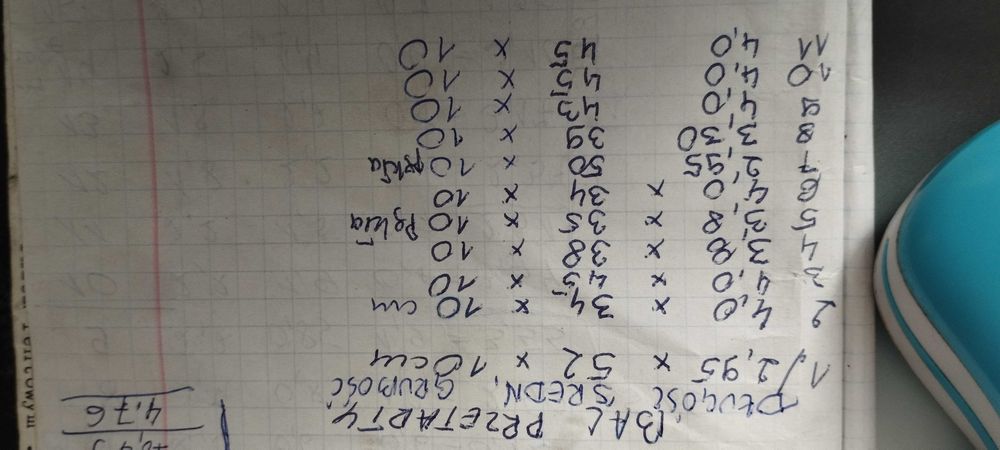 4,76
BAL PRZETARTY
DŁUGOŚĆ ŚREDN, GRUBOŚĆ
1) 2,95 x 52 x 10cm
2 4,0 x 34 x 10 cm
3 4,0 x 45 x 10
4 3,8 x 38 x 10
5 3,8 x 35 x 10 Pękła
6 4,0 x 34 x 10
7 2,95 50 x 10 pękła
8 3,30 39 x 10
9 4,0 43 x 10
10 4,0 45 x 10
11 4,0 45 x 10